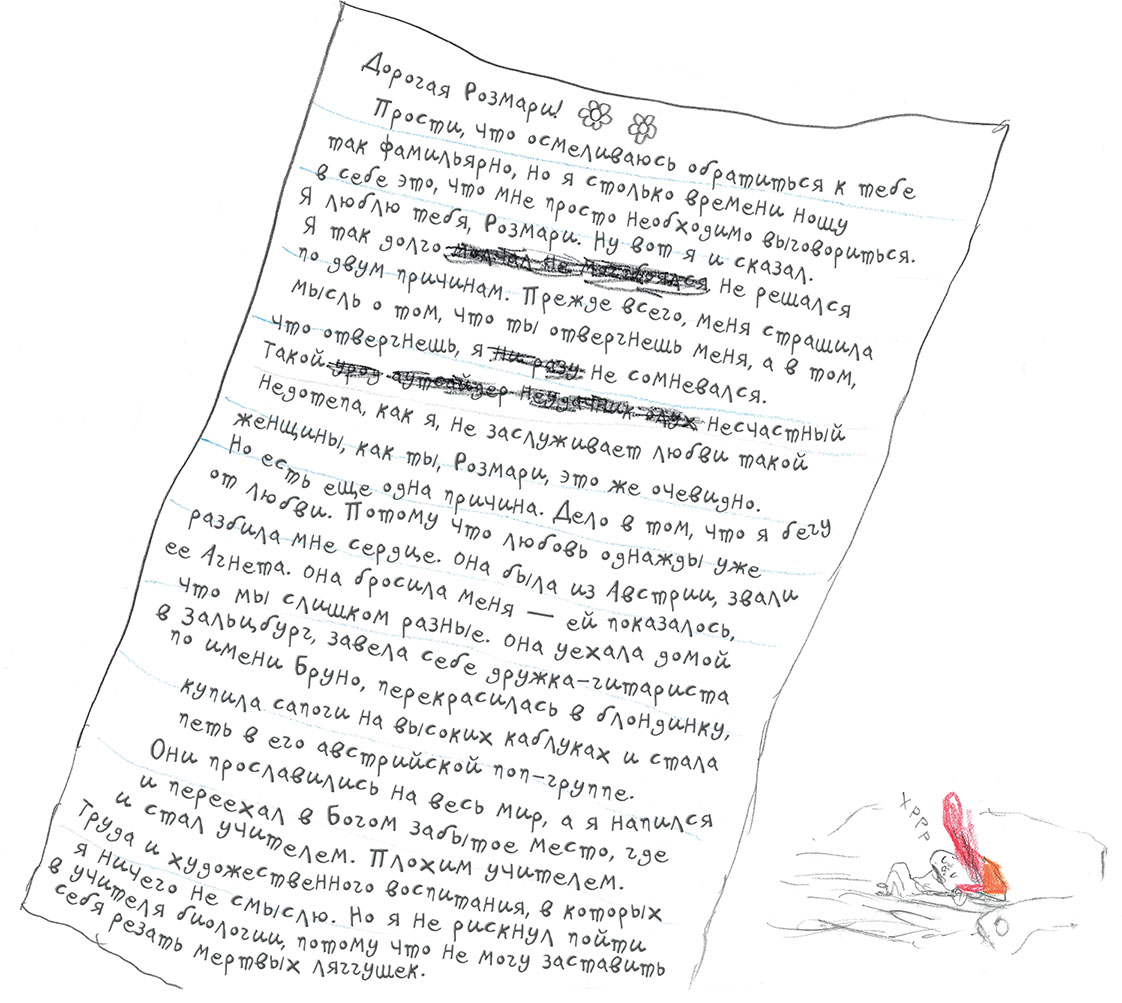 Дорогая Розмари!
Прости, что осмеливаюсь обратиться к тебе
так фамильярно, но я столько времени ношу
в себе это, что мне просто необходимо выговориться.
Я люблю тебя, Розмари. Ну вот я и сказал.
Я так долго молчал не не решался
по двум причинам. Прежде всего, меня страшила
мысль о том, что ты отвергнешь меня, а в том,
что отвергнешь, я ни разу не сомневался.
Такой урод аутсайдер неудачник олух несчастный
недотепа, как я, не заслуживает любви такой
женщины, как ты, Розмари, это же очевидно.
Но есть еще одна причина. Дело в том, что я бегу
от любви. Потому что любовь однажды уже
разбила мне сердце. Она была из Австрии, звали
ее Агнета. Она бросила меня — ей показалось,
что мы слишком разные. Она уехала домой
в Зальцбург, завела себе дружка-гитариста
по имени Бруно, перекрасилась в блондинку,
купила сапоги на высоких каблуках и стала
петь в его австрийской поп-группе.
Они прославились на весь мир, а я напился
и переехал в Богом забытое место, где
и стал учителем. Плохим учителем.
Труда и художественного воспитания, в которых
я ничего не смыслю. Но я не рискнул пойти
в учителя биологии, потому что не могу заставить
себя резать мертвых ляггушек.
ХРРР